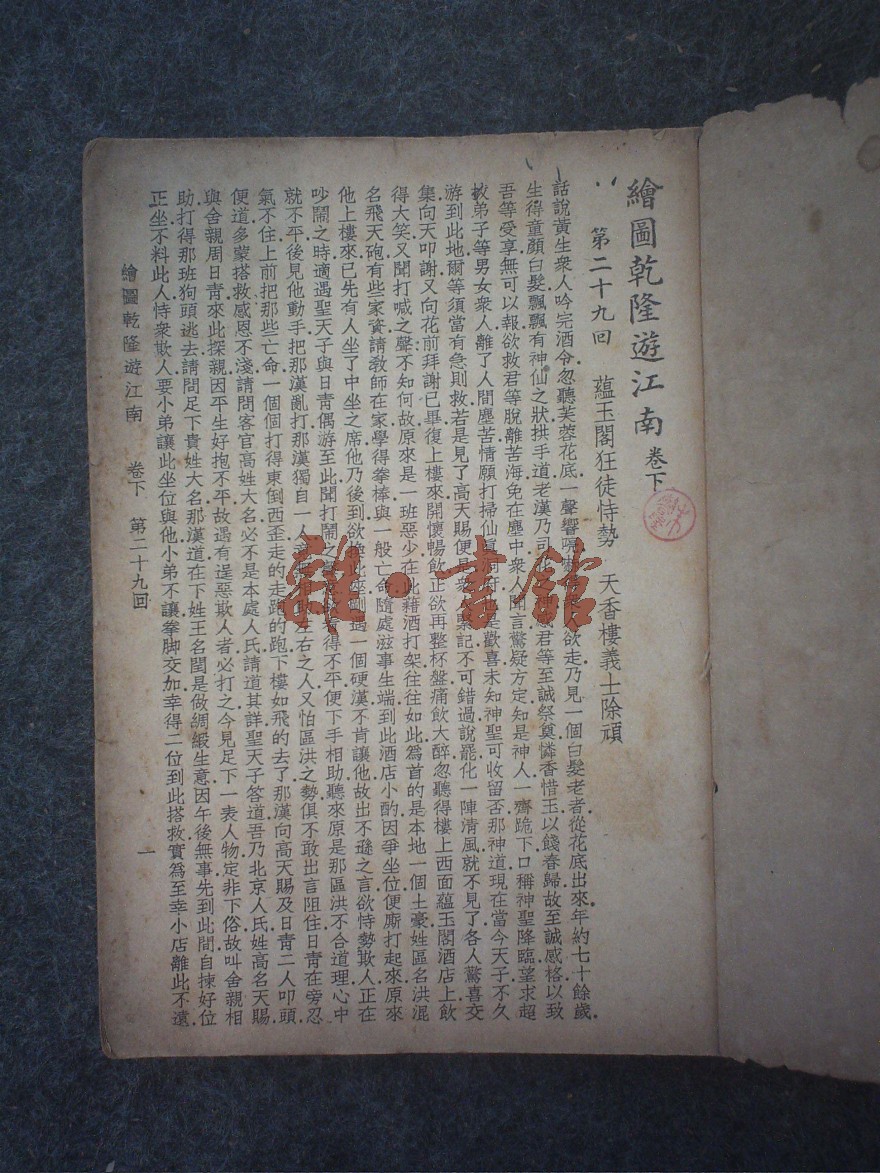 繪圖乾隆遊江南 卷下
第二十九回 蘊玉閣狂徒恃勢 天香樓義士除頑
話說黃生衆人吟完酒令忽聽芙蓉花底一聲響喨 人欲走乃見一個白髮老者從花底出來年約七十餘歲
生得童顏白髮飄飄有神仙之狀拱手道老漢乃司花 君等至誠祭奠憐香惜玉以餞春歸故至誠感格以致
吾等受享無可以報欲救君等脫離苦海免在塵中衆人聞言驚疑方定知是神人一齊跪下口稱神聖降臨望求超
拔弟子等男女衆人離了人間塵苦情願打掃仙 是歡喜未知神聖可收留否那神道現在當今天子不久
游到此地爾等須當有急則救若是見了高天賜便是 緊記不可錯過說罷化一陣清風就不見了各人驚喜交
集向天叩謝又向花前拜謝已畢復上樓來開懷暢飲正欲再整杯盤痛飲大醉忽聽得樓上西面蘊玉閣酒店上飲
得大笑又聞打喊之聲不知何故原來是一班惡少在此藉酒打架往往如此爲首的是本地一個土豪姓區名洪混
名飛天砲有些家資請教師在家學得拳棒與一般亡命隨處滋事生端到此酒店小酌因爭坐位便廝打起來原來
他上樓來已先有人坐了中坐之席他乃後到欲換此座剛遇一個硬漢不肯讓他故出不遜之言欲恃勢欺人正在
吵鬧之時適遇聖天子與日青偶游至此聞打鬧之聲 得不平便下手相助聽來原是那區洪不合道理心中
就不平後見他動手把那漢亂打那漢獨自一人 左右之人又怕區洪之勢俱不敢出言阻住日青在旁忍
氣不住上前把那些亡命一個個打得東倒西歪走的走跑的跑下樓如飛的去了那漢向高天賜及日青二人叩頭
便道多蒙搭救感恩不淺請問客官高姓大名必不是本處人氏請道其詳聖天子答道吾乃北京人氏姓高名天賜
與舍親周日青來此探親因平生好抱不平故遇有逞惡欺人者必打之今見足下一表人物定非下俗故叫舍親相
助打得那班狗頭逃去請問足下貴姓大名那漢道在下姓王名閏是做綢緞生意因午後無事先到此間自揀好位
正坐不料此人恃衆欺人要小弟讓此坐位與他小弟不讓拳脚交加幸得二位到此搭救實爲至幸小店離此不遠
繪圖乾隆遊江南 卷下 第二十九回 一
雜·書館